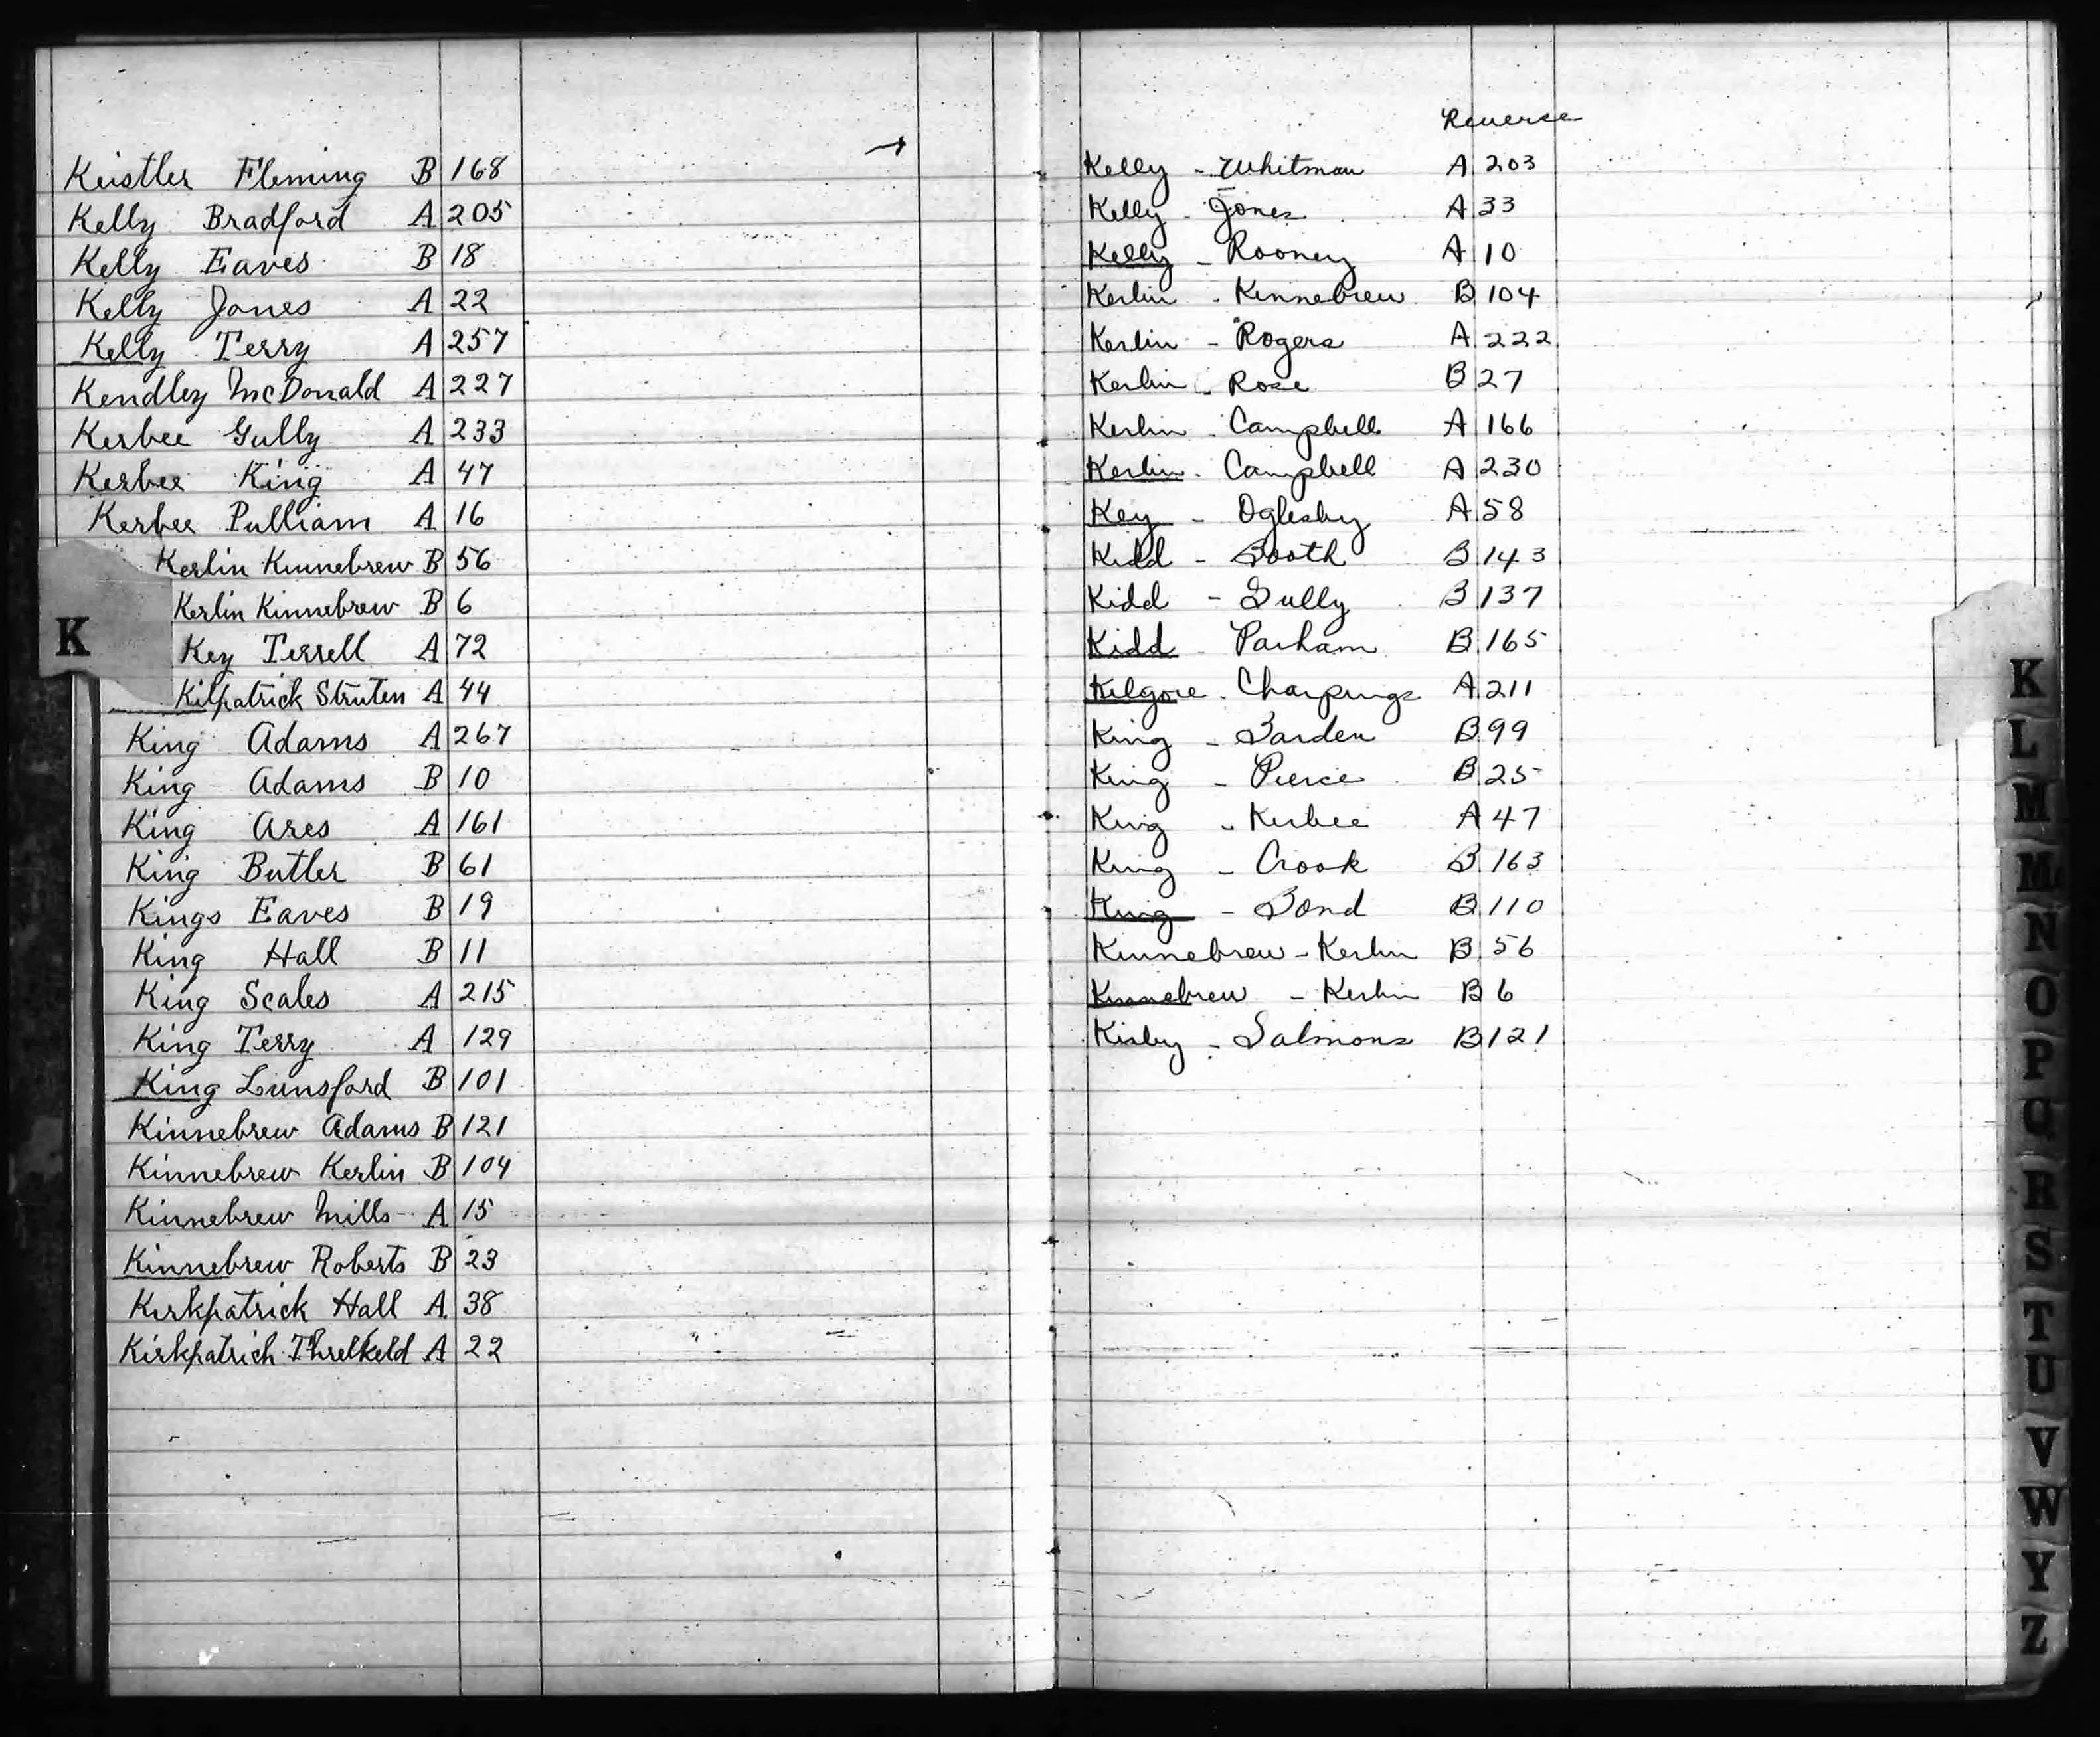 Keistler Fleming B 168
Kelly Bradford A 205
Kelly Eaves B 18
Kelly Jones A 22
Kelly Terry A 257
Kendley McDonald A 227
Kerbee Gully A 233
Kerbee King A 47
Kerbee Pulliam A 16
Kerlin Kinnebrew B 56
Kerlin Kinnebrew B 6
K
Key Terrell A 72
Kilpatrick Struten A 44
King Adams A 267
King Adams B 10
King Ares A 161
King Butler B 61
Kings Eaves B 19
King Hall B 11
King Scales A 215
King Terry A 129
King Lunsford B 101
Kinnebrew Adams B 121
Kinnebrew Kerlin B 104
Kinnebrew Mills - A 15
Kinnebrew Roberts B 23
Kirkpatrick Hall A 38
Kirkpatrick Threlkeld A 22
Reverse
Kelly - Whitman A 203
Kelly - Jones A 33
Kelly - Rooney A 10
Kerlin - Kinnebrew B 104
Kerlin - Rogers A 222
Kerlin - Rose B 27
Kerlin - Campbell A 166
Kerlin - Campbell A 230
Key - Oglesby A 58
Kidd - Booth B 143
Kidd - Gully B 137
Kidd - Parham B 165
Kilgore - Charpings A 211
King - Barden B 99
King - Pierce B 25
King - Kerbee A 47
King - Crook B 163
King - Bond B 110
Kinnebrew - Kerlin B 56
Kinnebrew - Kerlin B 6
Kirby - Salmons B 121
K
L
M
Mc
N
O
P
Q
R
S
T
U
V
W
Y
Z